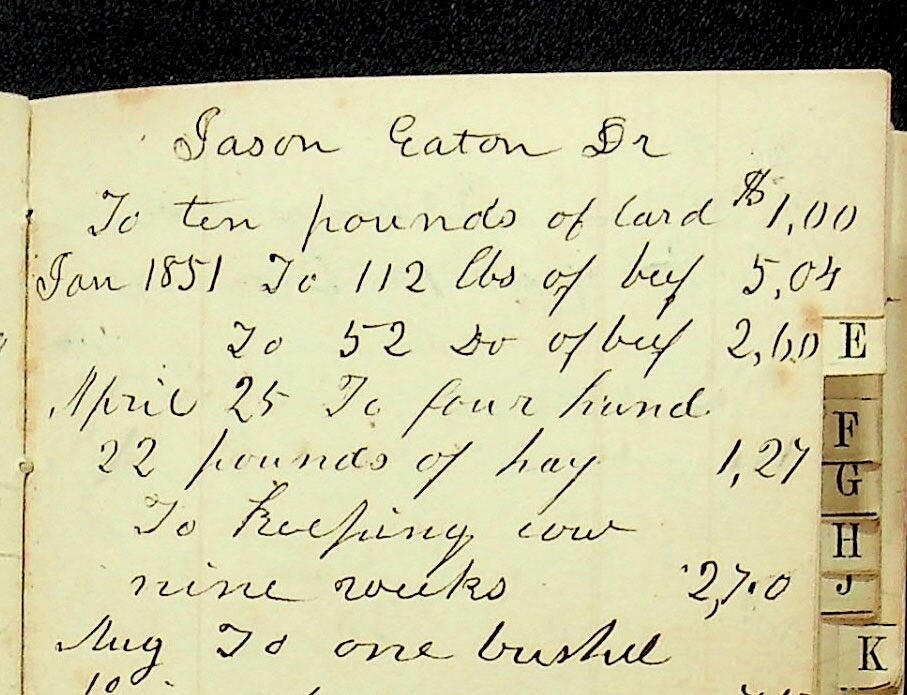 Jason Eaton Dr
To ten pounds of lard $1,00
Jan 1851 To 112 lbs of beef 5,04
To 52 Do of beef 2,60
April 25 To four hund
22 pounds of hay 1,27
To Keeping cow
nine weeks 2,70
Aug To one bushel
E
F
G
H
J
K